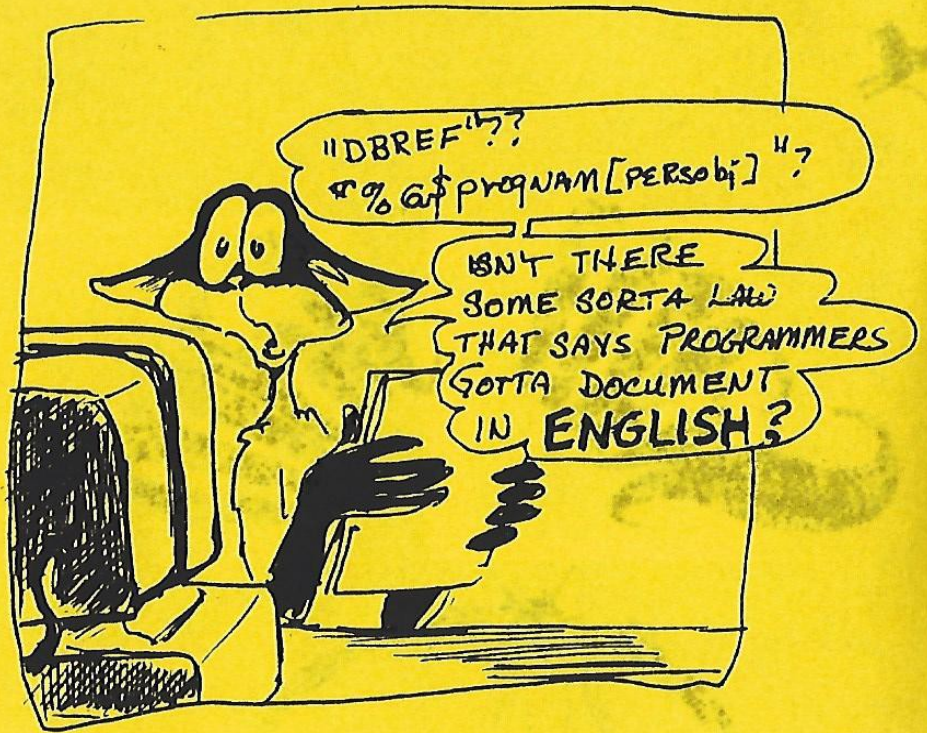 "DBREF"??
"%@$progNAM[PERSobj]"?
ISN'T THERE
SOME SORTA LAW
THAT SAYS PROGRAMMERS
GOTTA DOCUMENT
IN ENGLISH?